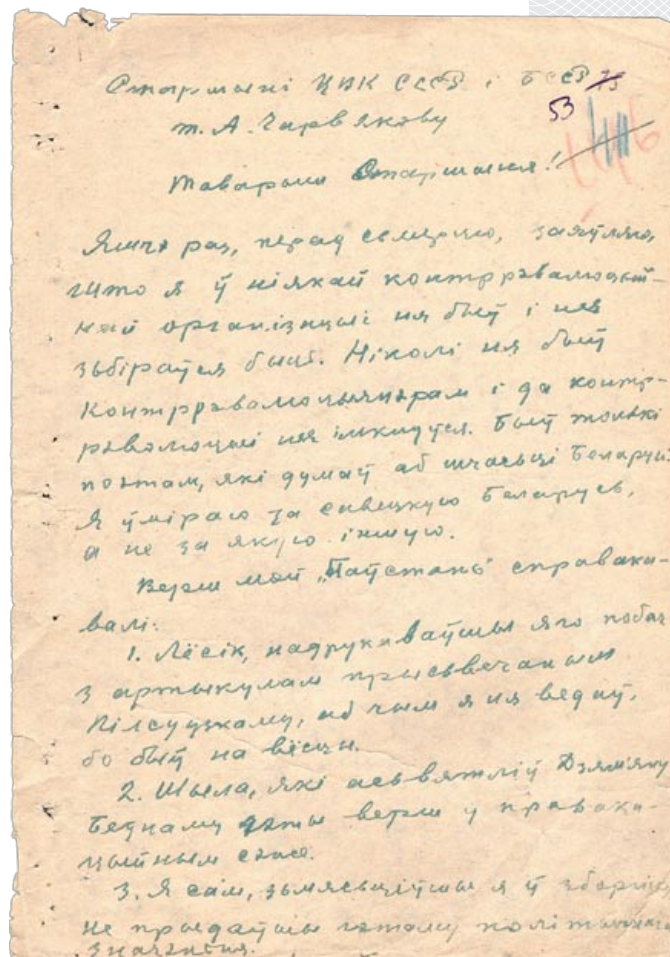 Старшыні ЦВК СССР і БССР
53 75
т. А. Чарвякову
Таварыш Старшыня!
Яшчэ раз, перад сьмерцю, заяўляю,
што я ў ніякай контррэвалюцый-
най організацыі ня быў і ня
зьбіраўся быць. Ніколі ня быў
контррэвалюцыянэрам і да контр-
рэволюцыі ня імкнуўся. Быў толькі
поэтам, які думаў аб шчасьці Беларусі.
Я ўміраю за савецкую Беларусь,
а не за якую іншую.
Верш мой „Паўстань" справака-
валі:
1. Лёсік, надрукаваўшы яго побач
з артыкулам прысьвечаным
Пілсудзкаму, аб чым я ня ведаў,
бо быў на вёсцы.
2. Шыла, які асьвятліў Дзям'яну
Беднаму гэты верш у правака-
цыйным сэнсе.
3. Я сам, зьмясьціўшы я ў зборніку
не прыдаўшы гэтаму політычнага
значэння.